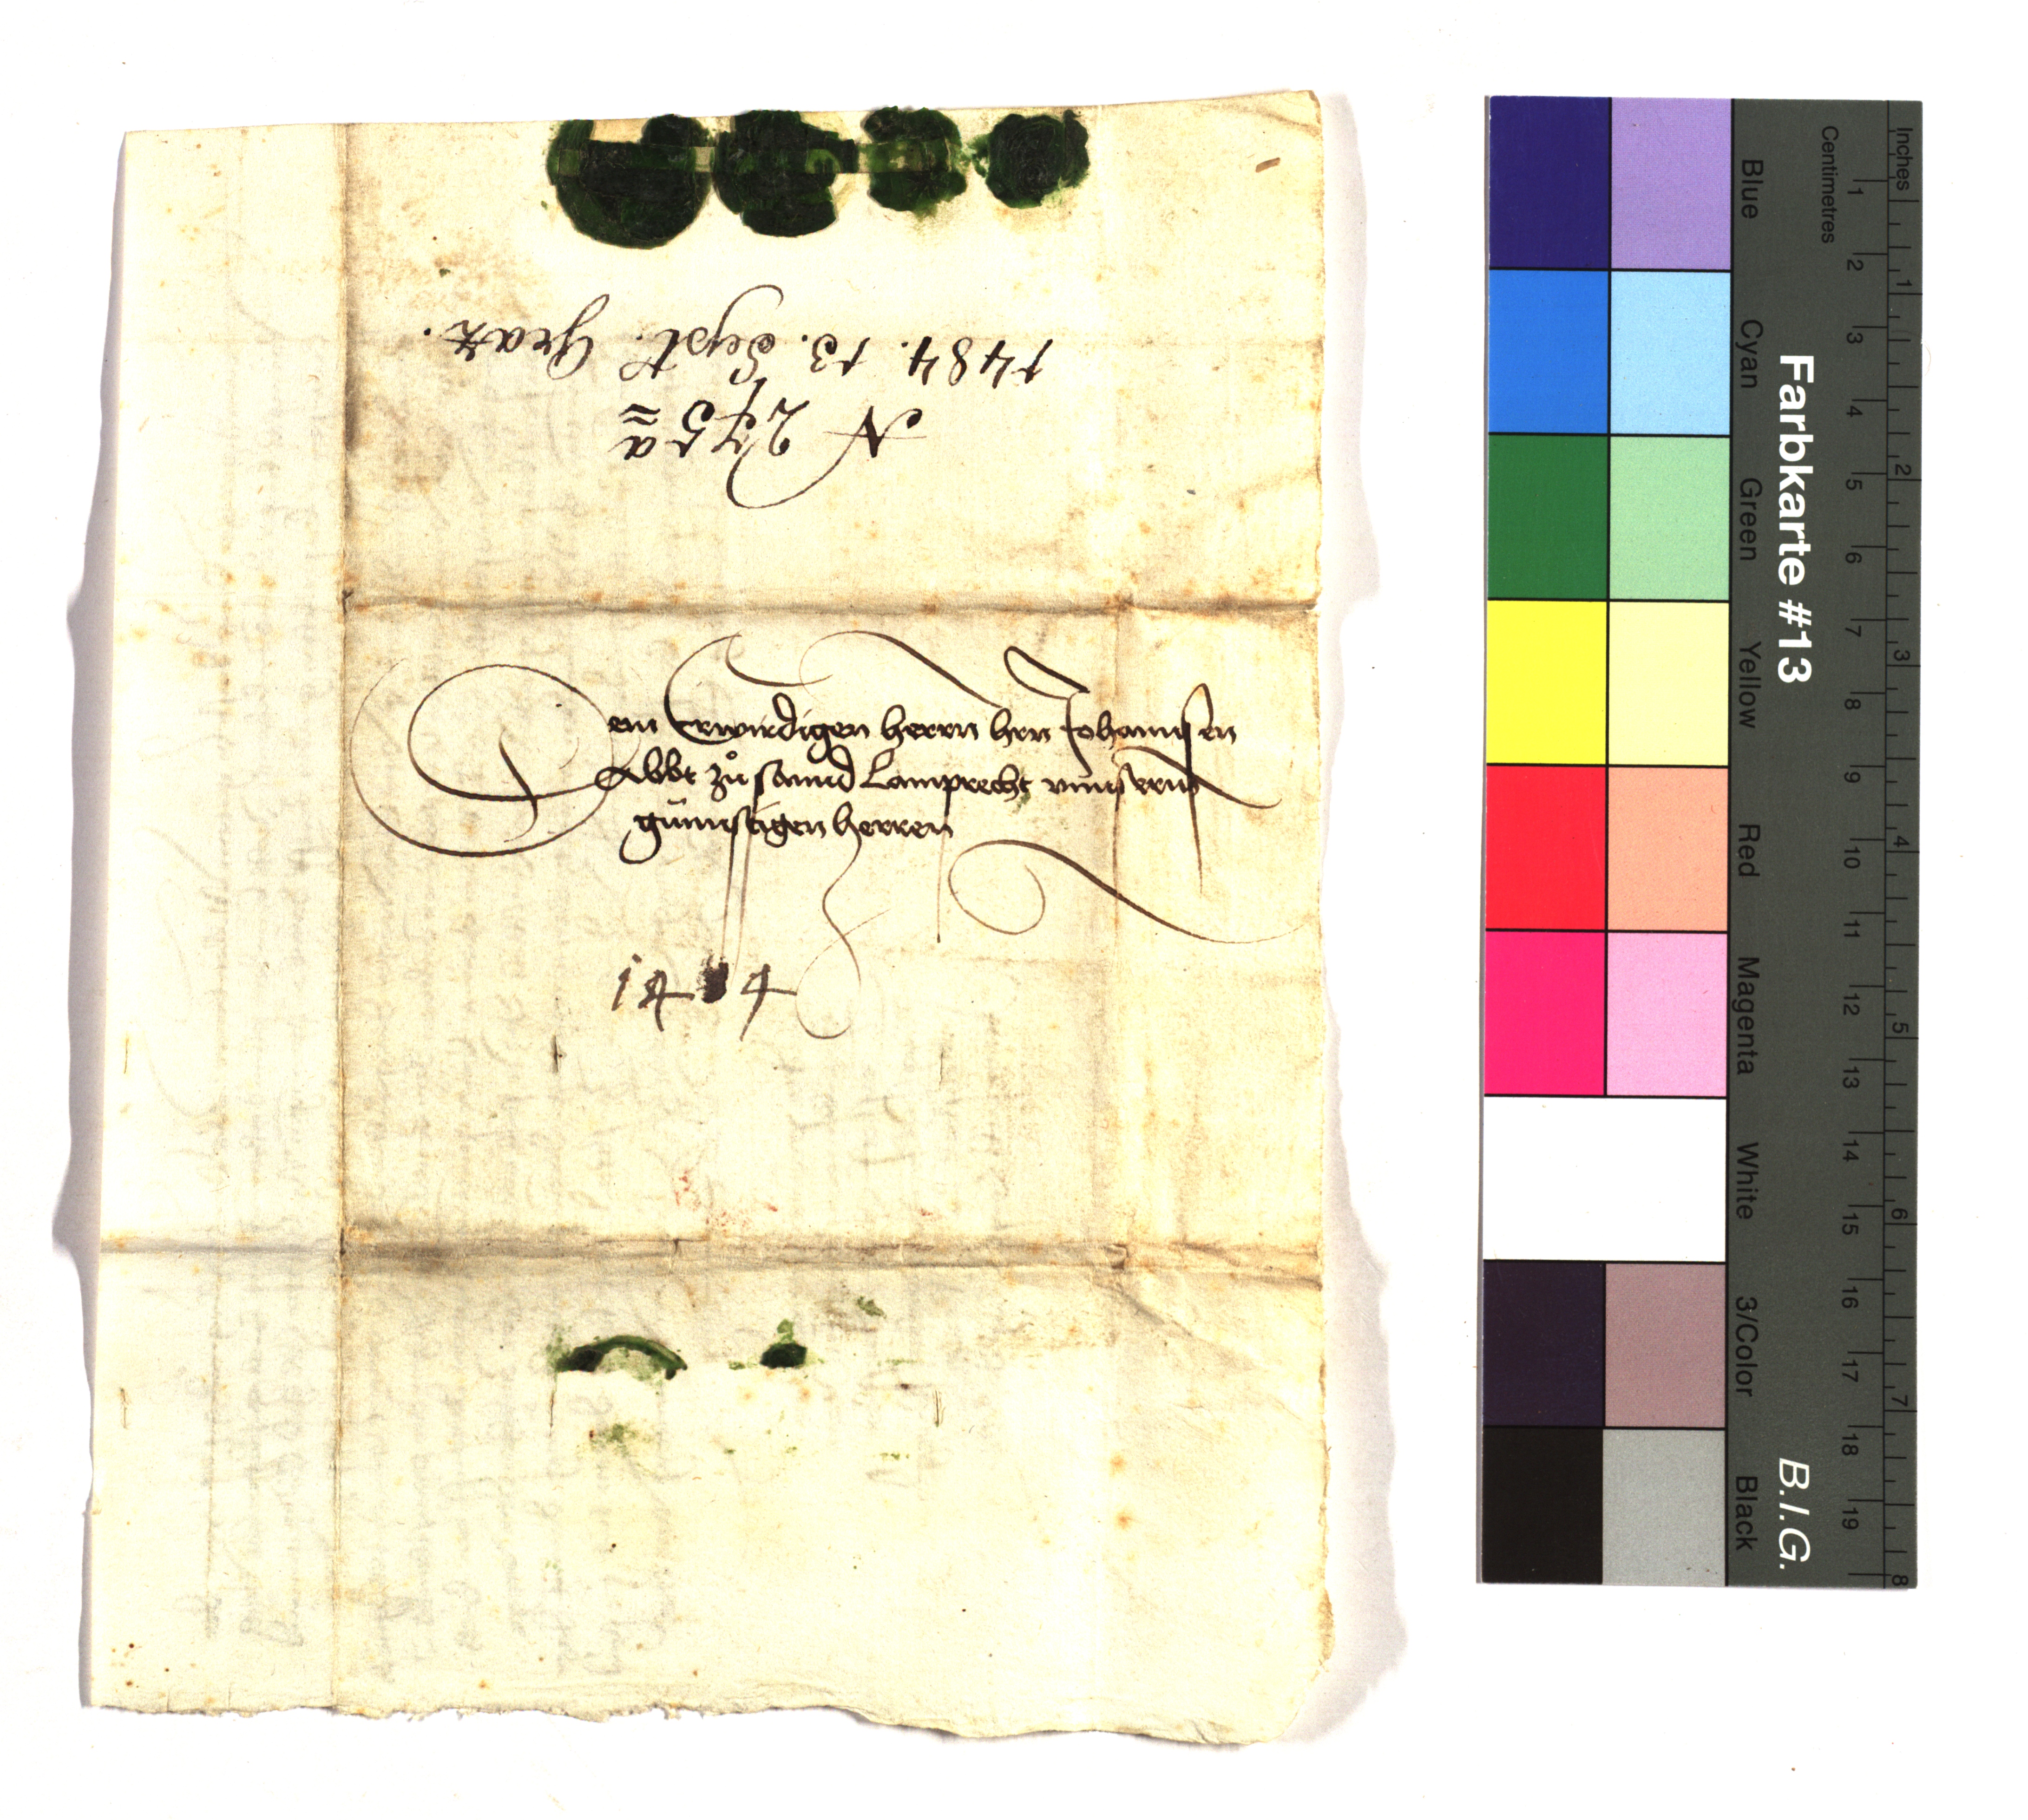 1484. 13. Sept. Graz.
N 275 a
Dem Erwirdigen herrn hrn Johannsen
Abbt zů sannd Lamprecht vnnserm
günnstigen herren
Inches
Centimetres
1 2 3 4 5 6 7 8 9 10 11 12 13 14 15 16 17 18 19
1 2 3 4 5 6 7 8
Farbkarte #13
B.I.G.
Blue Cyan Green Yellow Red Magenta White 3/Color Black